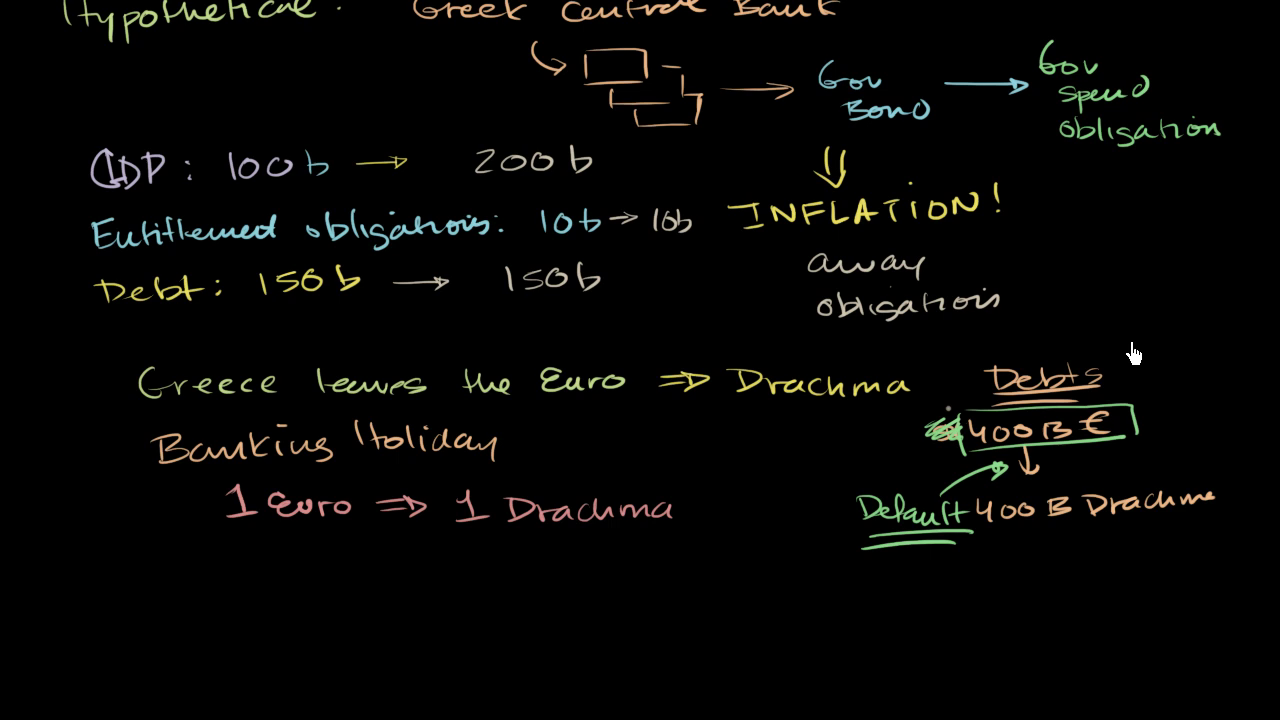 Hypothetical: Greek Central Bank
Gov Bond
Gov Spend obligation
GDP: 100b → 200b
Entitlement obligations: 10b → 10b
Debt: 150b → 150b
INFLATION!
away
obligations
Greece leaves the Euro ⇒ Drachma
Banking Holiday
1 Euro ⇒ 1 Drachma
Debts
400 B €
Default
400 B Drachme